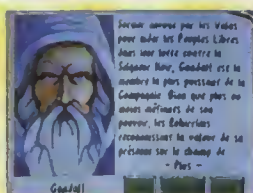 Sorcier envoyé par les Valars
pour aider les Peuples Libres
dans leur lutte contre le
Seigneur Noir, Gandalf est le
membre le plus puissant de la
Compagnie. Bien que plus ou
moins méfiants de son
pouvoir, les
reconnaissent la valeur de sa
présence sur le champ de
- Plus -
Gandalf